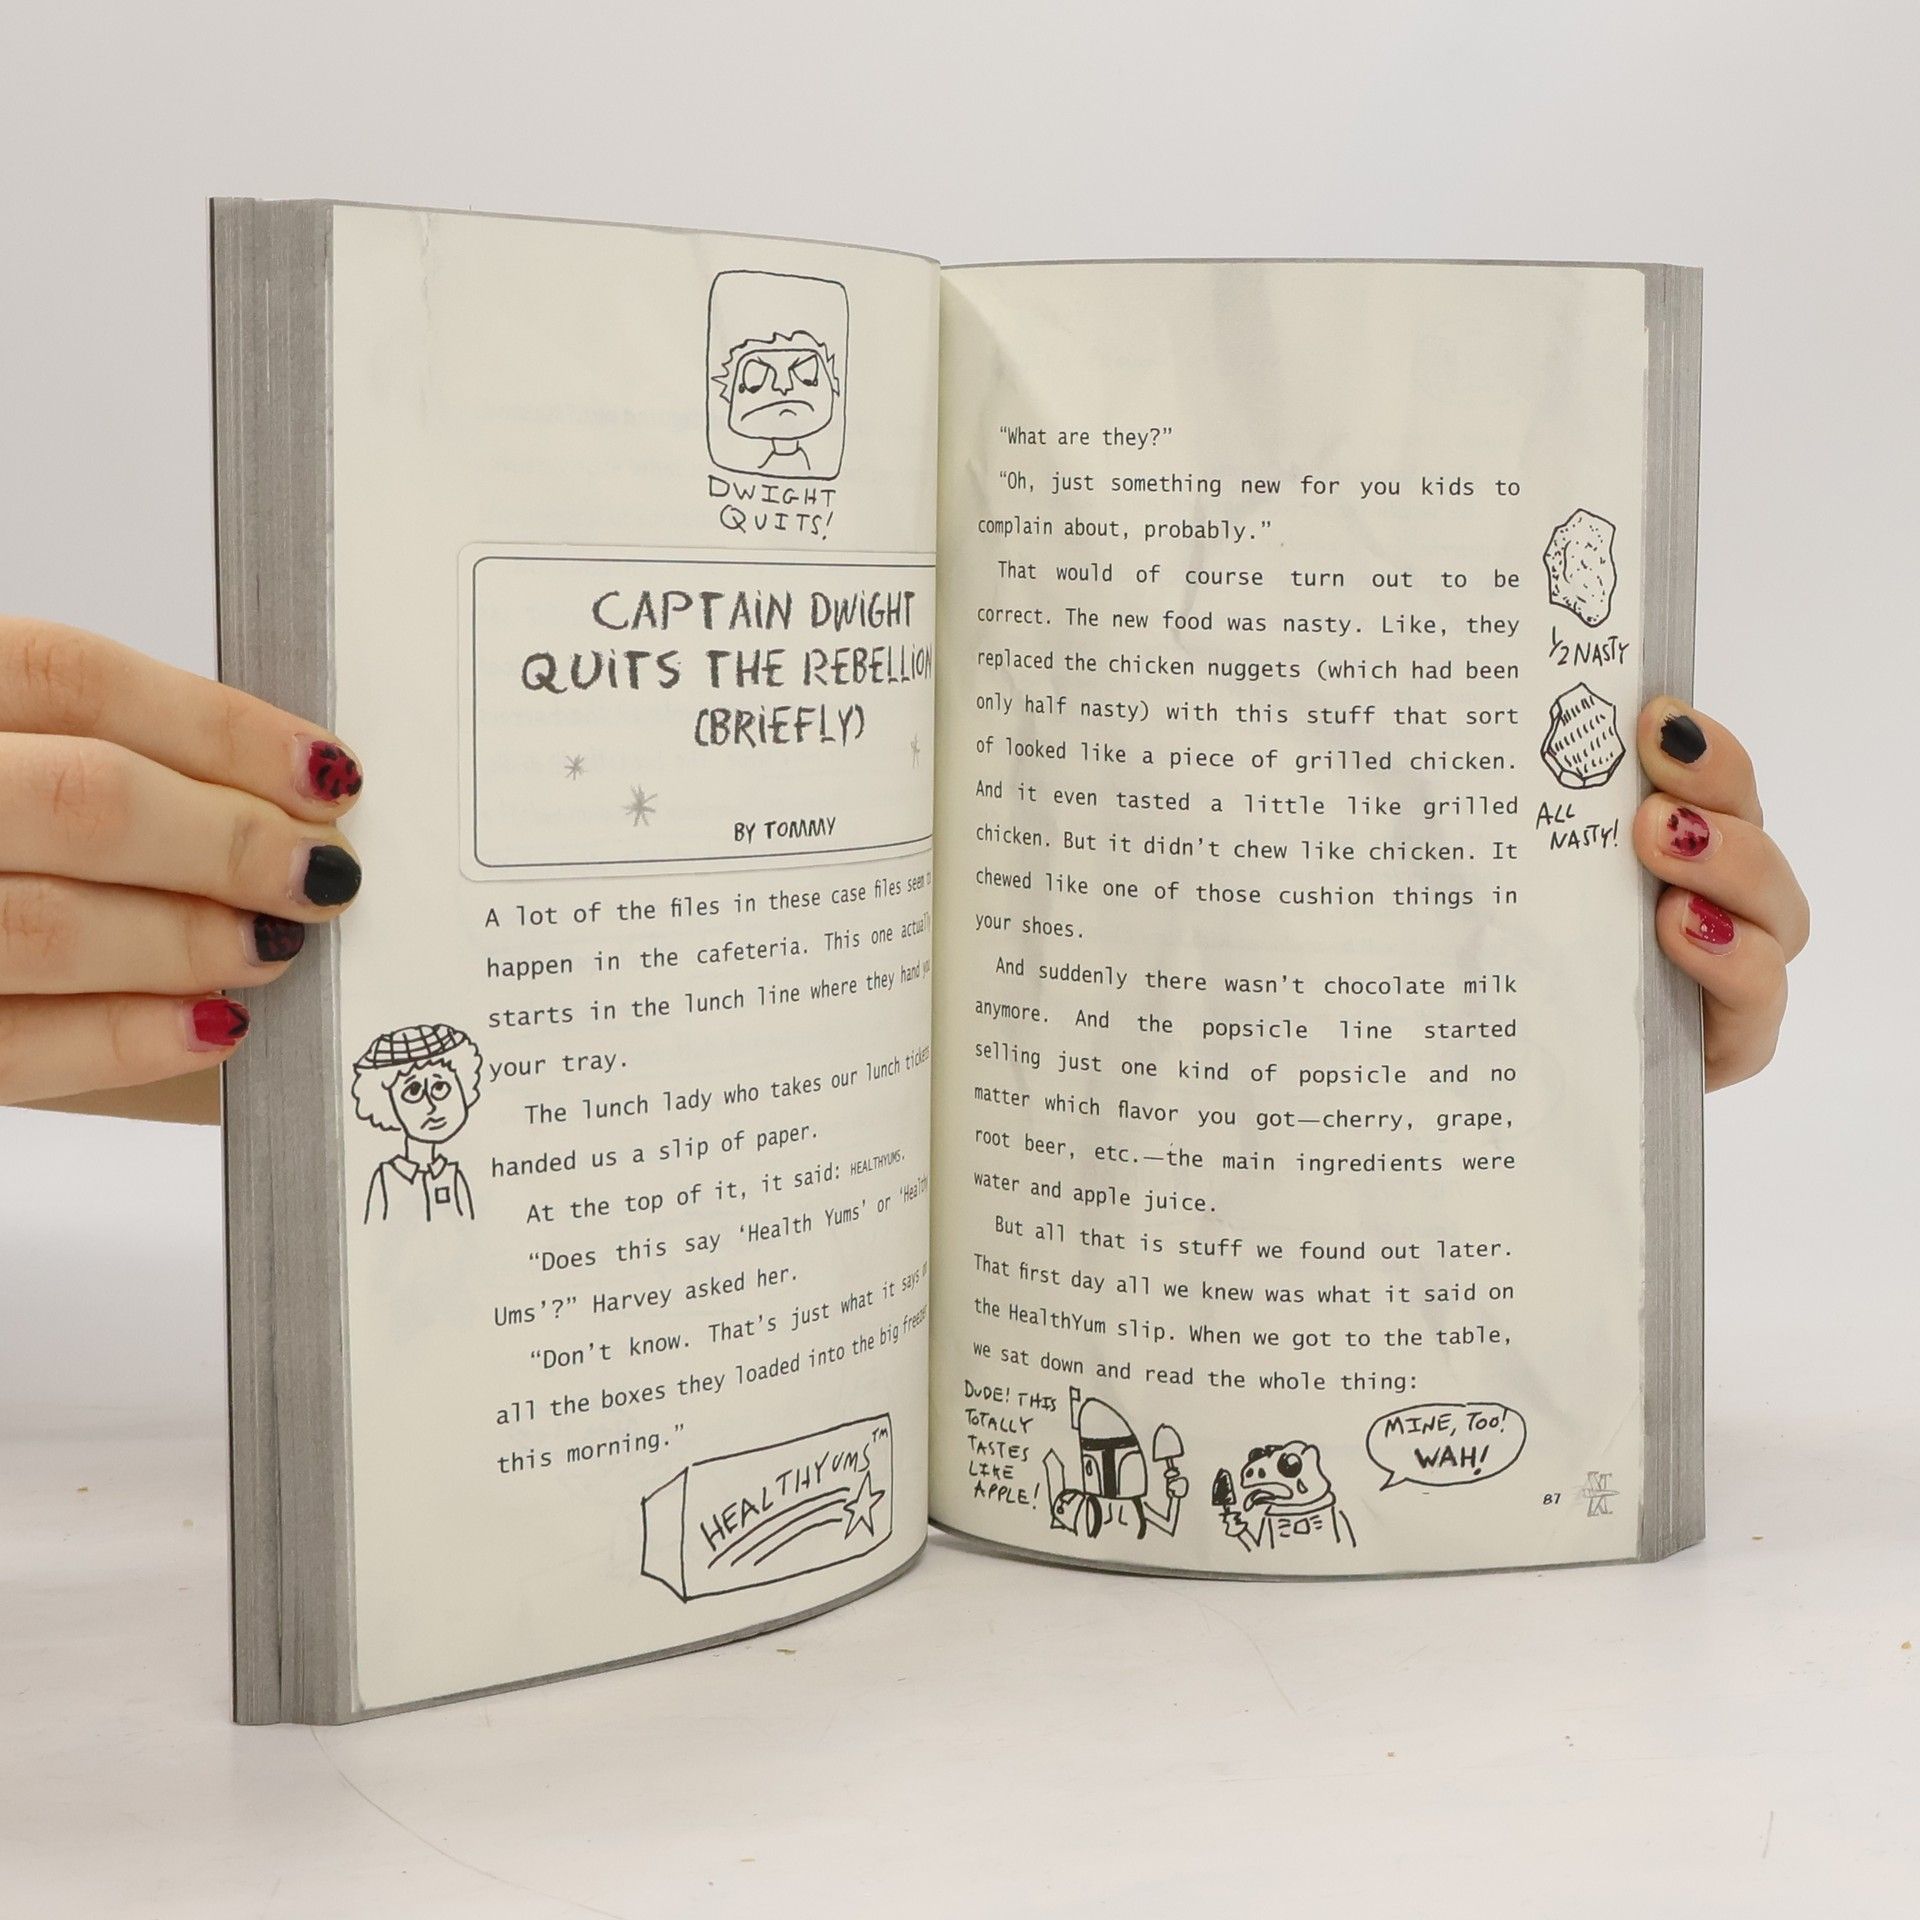 DWIGHT
QUITS!
CAPTAIN DWIGHT
QUITS THE REBELLION
(BRIEFLY)
BY TOMMY
A lot of the files in these case files seem
happen in the cafeteria. This one actually
starts in the lunch line where they hand you
your tray.
The lunch lady who takes our lunch tickets
handed us a slip of paper.
At the top of it, it said: HEALTHYUMS.
“Does this say ‘Health Yums’ or ‘Healthy
Ums’?” Harvey asked her.
“Don’t know. That’s just what it says on
all the boxes they loaded into the big freezer
this morning.”
HEALTHYUMS™
“What are they?”
“Oh, just something new for you kids to
complain about, probably.”
That would of course turn out to be
correct. The new food was nasty. Like, they
replaced the chicken nuggets (which had been
only half nasty) with this stuff that sort
of looked like a piece of grilled chicken.
And it even tasted a little like grilled
chicken. But it didn’t chew like chicken. It
chewed like one of those cushion things in
your shoes.
And suddenly there wasn’t chocolate milk
anymore. And the popsicle line started
selling just one kind of popsicle and no
matter which flavor you got—cherry, grape,
root beer, etc.—the main ingredients were
water and apple juice.
But all that is stuff we found out later.
That first day all we knew was what it said on
the HealthYum slip. When we got to the table,
we sat down and read the whole thing:
1/2 NASTY
ALL
NASTY!
DUDE! THIS
TOTALLY
TASTES
LIKE
APPLE!
MINE, TOO!
WAH!
87